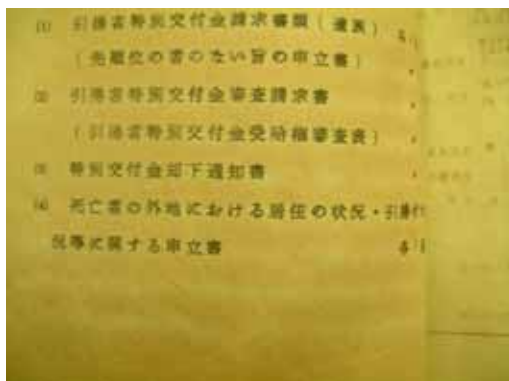 (1) 引揚者特別交付金請求書類(遺族) 各1
(先順位の者のない旨の申立書)
(2) 引揚者特別交付金審査請求書
(引揚者特別交付金受給権審査表)
(3) 特別交付金却下通知書
(4) 死亡者の外地における居住の状況・引揚
況等に関する申立書 各1